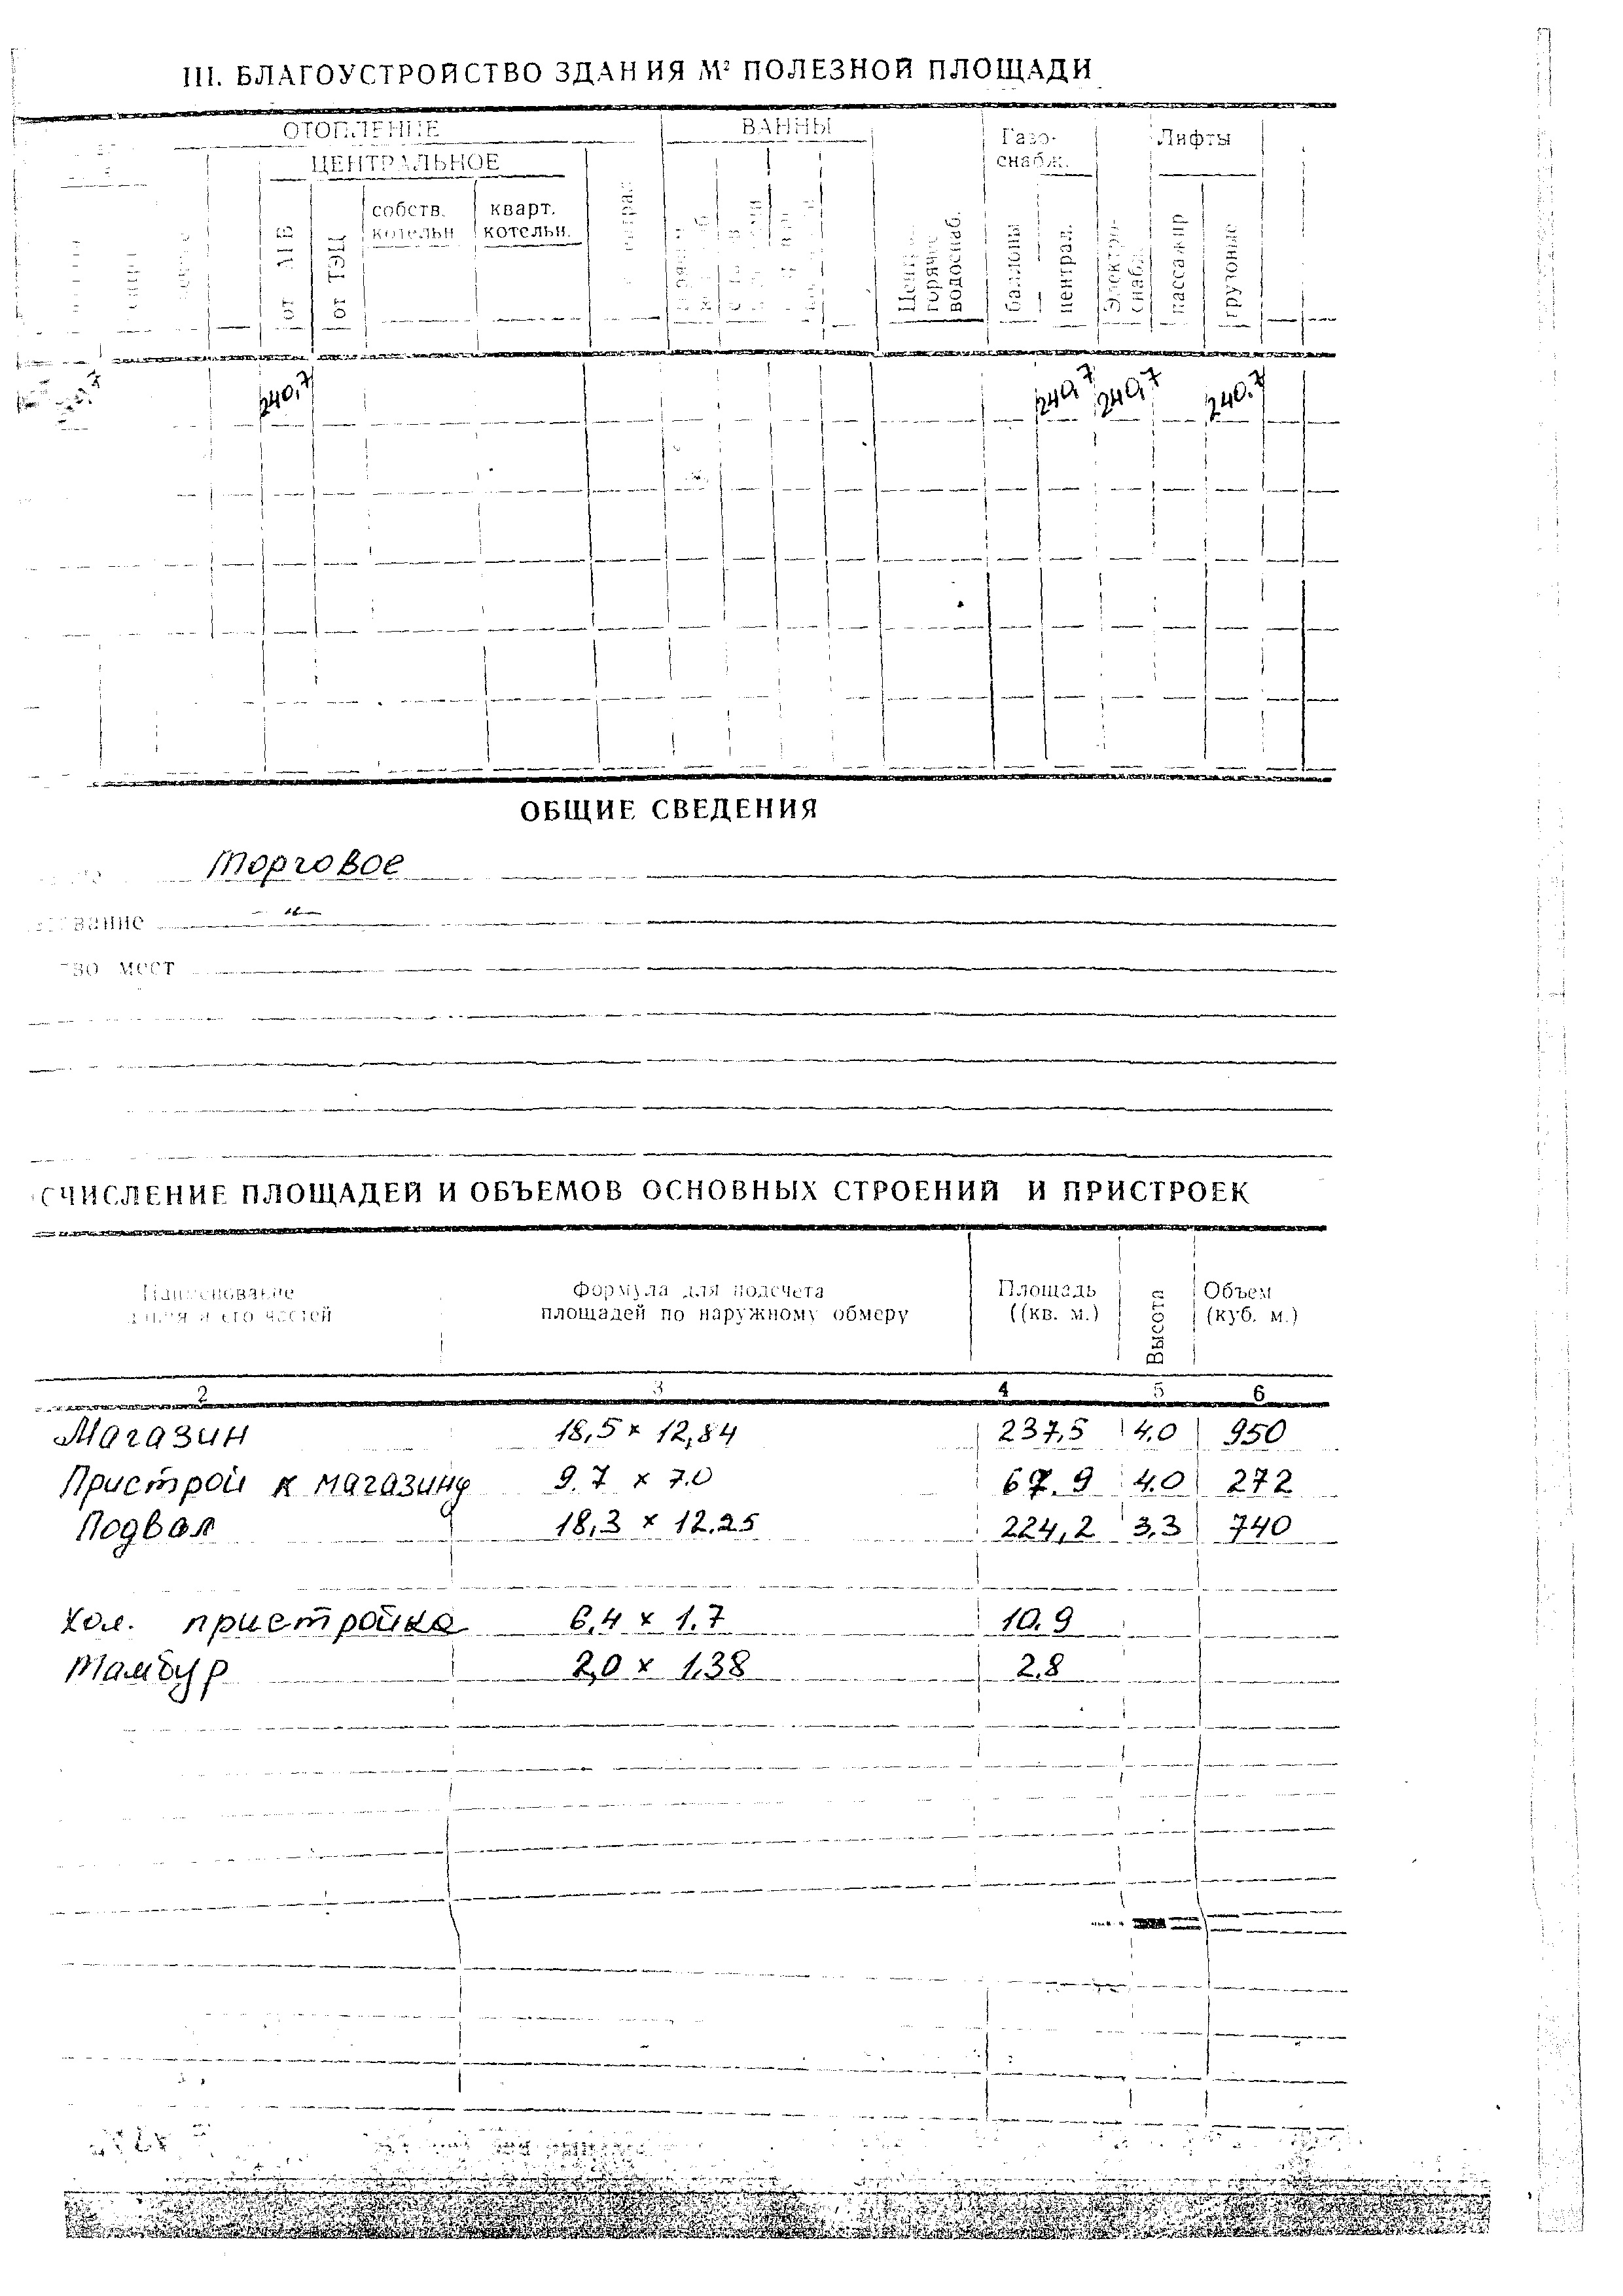 III. БЛАГОУСТРОЙСТВО ЗДАНИЯ М² ПОЛЕЗНОЙ ПЛОЩАДИ
ОТОПЛЕНИЕ ВАННЫ Газо- Лифты
ЦЕНТРАЛЬНОЕ снабж.
собств. кварт.
котельн котельн.
от ТЭЦ
горячее
водоснаб.
баллоны
централ.
Электро-
снабж.
пассажир
грузовые
240,7 240,7 240,7 240.7
ОБЩИЕ СВЕДЕНИЯ
Торговое
вание — " —
мест
СЧИСЛЕНИЕ ПЛОЩАДЕЙ И ОБЪЕМОВ ОСНОВНЫХ СТРОЕНИЙ И ПРИСТРОЕК
Наименование Формула для подсчета Площадь Высота Объем
и его частей площадей по наружному обмеру ((кв. м.) (куб. м.)
2 3 4 5 6
Магазин 18,5 x 12,84 237,5 4,0 950
Пристрой к магазину 9.7 x 7.0 67.9 4.0 272
Подвал 18,3 x 12.25 224,2 3,3 740
Хол. пристройка 6,4 x 1,7 10.9
Тамбур 2,0 x 1,38 2,8